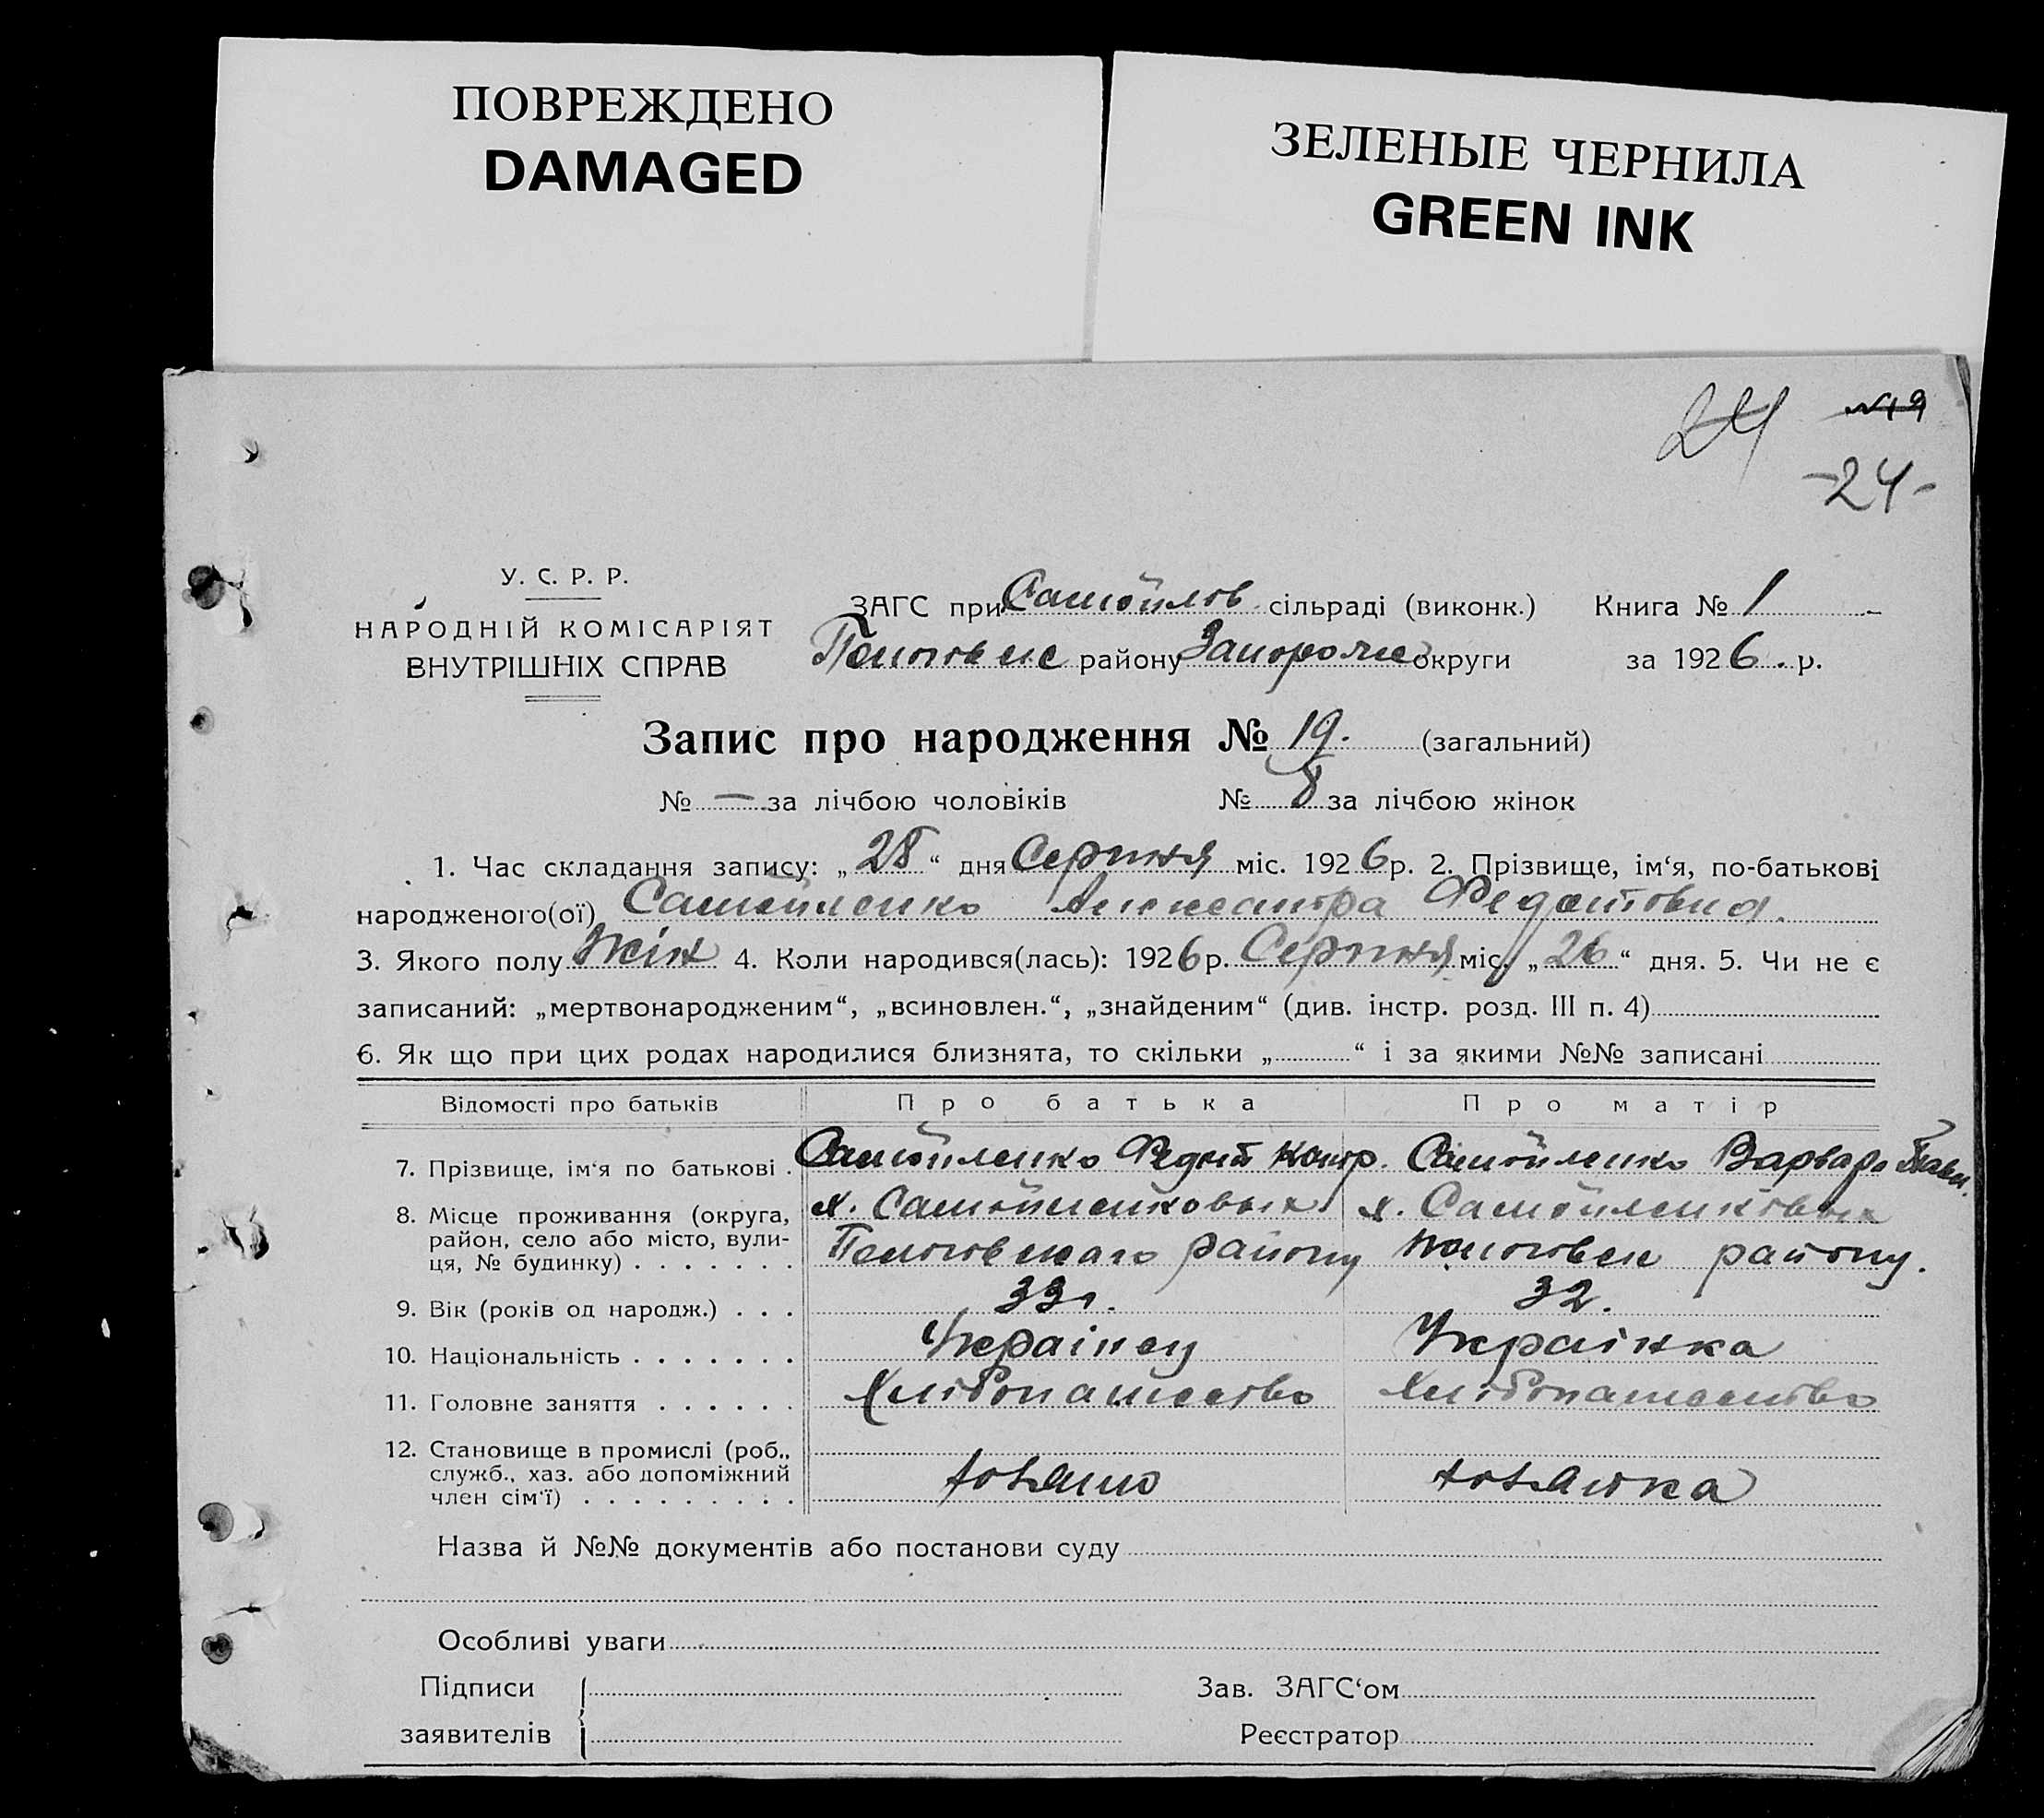 ПОВРЕЖДЕНО
DAMAGED
ЗЕЛЕНЫЕ ЧЕРНИЛА
GREEN INK
24 №19
-24-
У. С. Р. Р.
НАРОДНІЙ КОМІСАРІЯТ
ВНУТРІШНІХ СПРАВ
ЗАГС при Самойлов сільраді (виконк.) Книга № 1
Пологовск району Запорож округи за 1926 р.
Запис про народження № 19. (загальний)
№ — за лічбою чоловіків № 8 за лічбою жінок
1. Час складання запису: „28“ дня Серпня міс. 1926 р. 2. Прізвище, ім‘я, по-батькові
народженого(ої) Самойленко Александра Федотовна.
3. Якого полу жін 4. Коли народився(лась): 1926 р. Серпня міс. „26“ дня. 5. Чи не є
записаний: „мертвонародженим“, „всиновлен.“, „знайденим“ (див. інстр. розд. III п. 4)
6. Як що при цих родах народилися близнята, то скільки „ “ і за якими №№ записані
Відомості про батьків Про батька Про матір
7. Прізвище, ім‘я по батькові . Самойленко Федот Самойленко Варвара Павл.
8. Місце проживання (округа, х. Самойленковых х. Самойленковых
район, село або місто, вули-
ця, № будинку) . . . . . . . Пологовскаго району Пологовск району.
9. Вік (років од народж.) . . . 33 г. 32.
10. Національність . . . . . . . Українец Українка
11. Головне заняття . . . . . . Хлібопашество Хлібопашество
12. Становище в промислі (роб.,
служб., хаз. або допоміжний
член сім‘ї) . . . . . . . . .
Назва й №№ документів або постанови суду
Особливі уваги
Підписи Зав. ЗАГС‘ом
заявителів Реєстратор